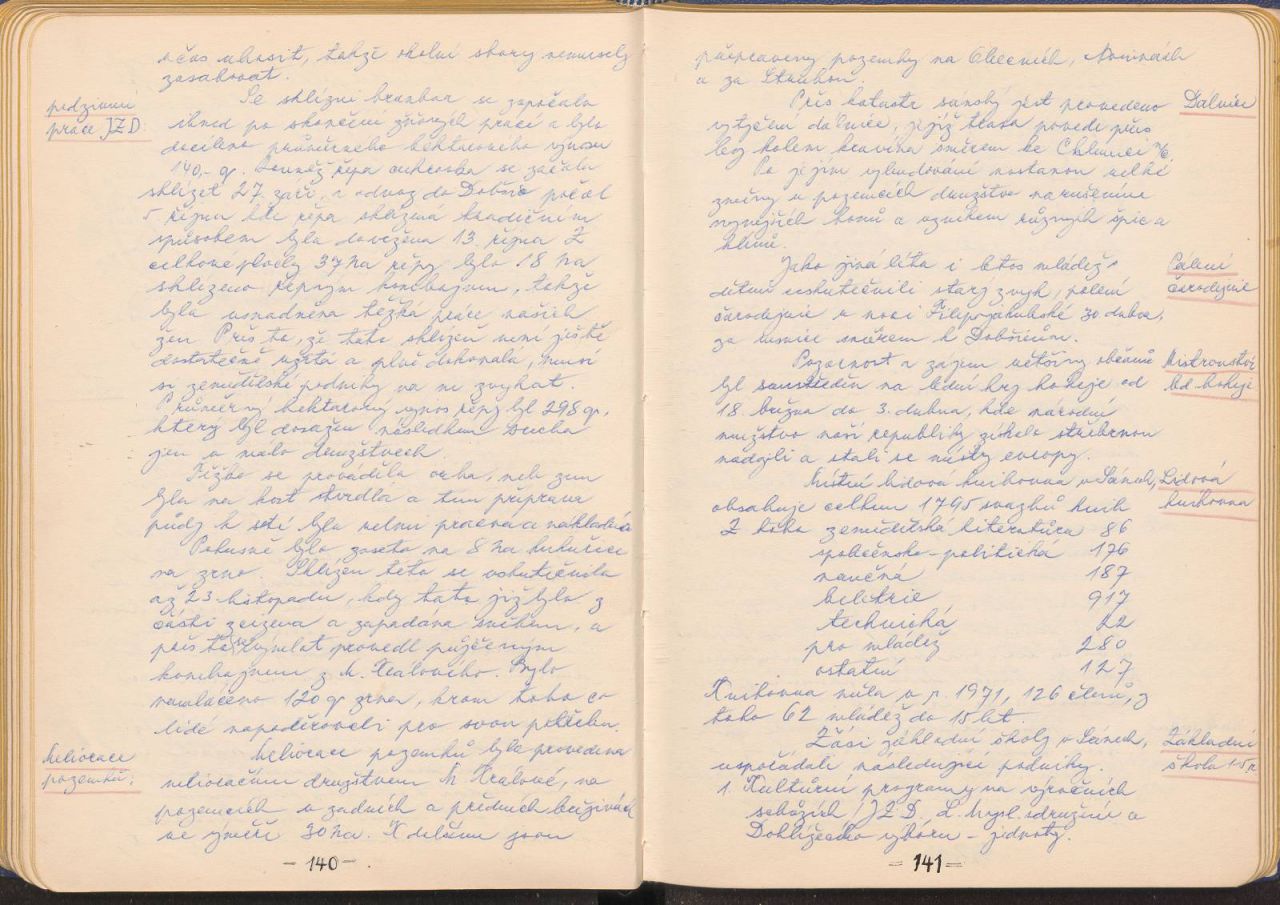 včas uhasit, takže okolní sbory nemusely
zasahovat.
podzimní
práce JZD
Se sklízní brambor se započalo
ihned po skončení žňových prací a bylo
docíleno průměrného hektarového výnosu
140,- q. Rovněž řepa cukrovka se začala
sklízet 27. září, a odvoz do Dobšic počal
5 října kde řepa sklizná tradičním
způsobem byla dovežena 13. října Z
celkové plochy 37 ha řepy bylo 18 ha
sklizeno řepným kombajnem, takže
byla usnadněna těžká práce našich
žen Přes to, že tato sklizeň není ještě
dostatečně vžitá a plně dokonalá, musí
si zemědělské podniky na ni zvykat.
Průměrný hektarový výnos řepy byl 298 q,
který byl dosažen následkem sucha
jen v málo družstvech.
Tížeo se prováděla orba, neb zem
byla na kost tvrdla a tím příprava
půdy k setí byla velmi pracná a nákladná
Pokusně bylo zaseto na 8 ha kukuřice
na zrno. Sklizeň této se uskutečnila
až 23 listopadu, kdy tato již byla z
části zcizena a zapadaná sněhem, a
přes to výmlat provedl půjčeným
kombajnem z H. Královéhο. Bylo
namláceno 120 q zrna, krom toho co
lidé napodírovali pro svou potřebu.
meliorace
pozemků:
Meliorace pozemků byla provedena
melioračním družstvem H Králové, na
pozemcích v zadních a předních
ve výměře 30 ha. K dalším jsou
- 140 - .
připraveny pozemky na Obecních, Novinách
a za Struhou.
Dálnice
Přes katastr sánský jest provedeno
vytyčení dálnice, jejíž trasa povede přes
leg kolem kravína směrem ke Chlumci n/C.
Po jejím vybudování nastanou velké
změny v pozemcích družstva narušením
nynějších honů a vznikem různých špic a
klínů.
Pálení
čarodejnic
Jako jiná léta i letos mládež
dětmi uskutečnili starý zvyk, pálení
čarodejnic v noci Filipojakubské 30 dubna,
za vesnicí směrem k Dobšicům.
Mistrovství
led. hokeje
Pozornost a zájem většiny občanů
byl soustředěn na lední hry hokeje od
18. března do 3. dubna, kde národní
mužstvo naší republiky získalo stříbrnou
nadaji a stali se mistry evropy.
Lidová
knihovna
Místní lidová knihovna v Sánech,
obsahuje celkem 1795 svazků knih
Z toho zemědělská literatura 86
společensko - politická 176
naučná 187
beletrie 917
technická 22
pro mládež 280
ostatní 127
Knihovna měla v r. 1971, 126 členů, z
toho 62 mládež do 15 let.
Základní
škola 1-5 r.
Žáci základní školy v Sánech,
uspořádali následující podniky.
1. Kulturní programy na výročních
schůzích JZD, L. Mysl. sdružení a
Dohlížecího výboru - jednoty.
- 141 -